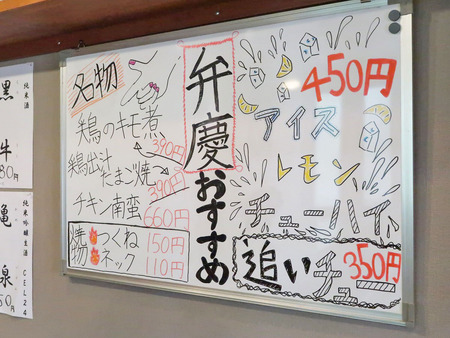 弁慶おすすめ
名物
鶏のキモ煮
390円
鶏出汁
たまご焼
390円
チキン南蛮
660円
焼物
つくね 150円
ネック 110円
450円
アイス
レモン
チューハイ
追いチュー
350円
純米酒
黒
牛
80円
純米吟醸生酒 CEL24
亀
泉
50円